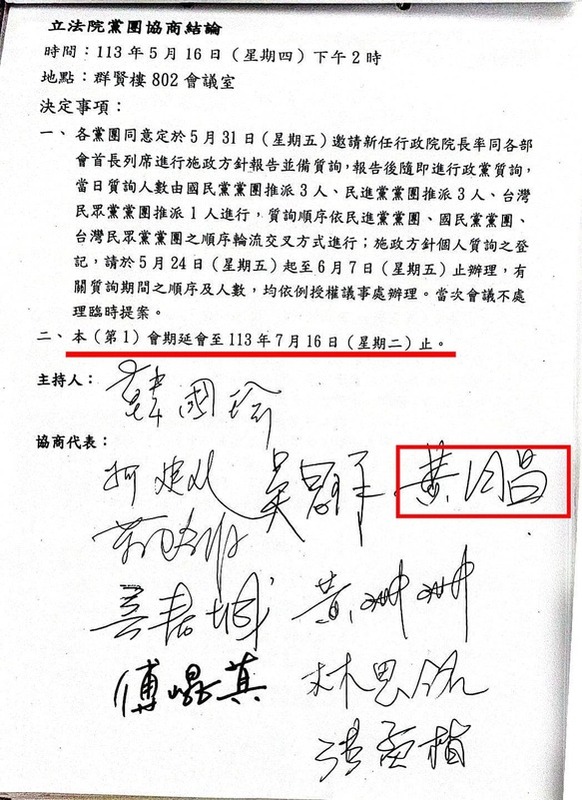 立法院黨團協商結論
時間：113年5月16日（星期四）下午2時
地點：群賢樓802會議室
決定事項：
一、各黨團同意定於5月31日（星期五）邀請新任行政院院長率同各部
會首長列席進行施政方針報告並備質詢，報告後隨即進行政黨質詢，
當日質詢人數由國民黨黨團推派3人、民進黨黨團推派3人、台灣
民眾黨黨團推派1人進行，質詢順序依民進黨黨團、國民黨黨團、
台灣民眾黨黨團之順序輪流交叉方式進行；施政方針個人質詢之登
記，請於5月24日（星期五）起至6月7日（星期五）止辦理，有
關質詢期間之順序及人數，均依例授權議事處辦理。當次會議不處
理臨時提案。
二、本（第1）會期延會至113年7月16日（星期二）止。
主持人：韓國瑜
協商代表：
柯建銘 吳思瑤 黃國昌
黃珊珊
傅崐萁 林思銘
洪孟楷